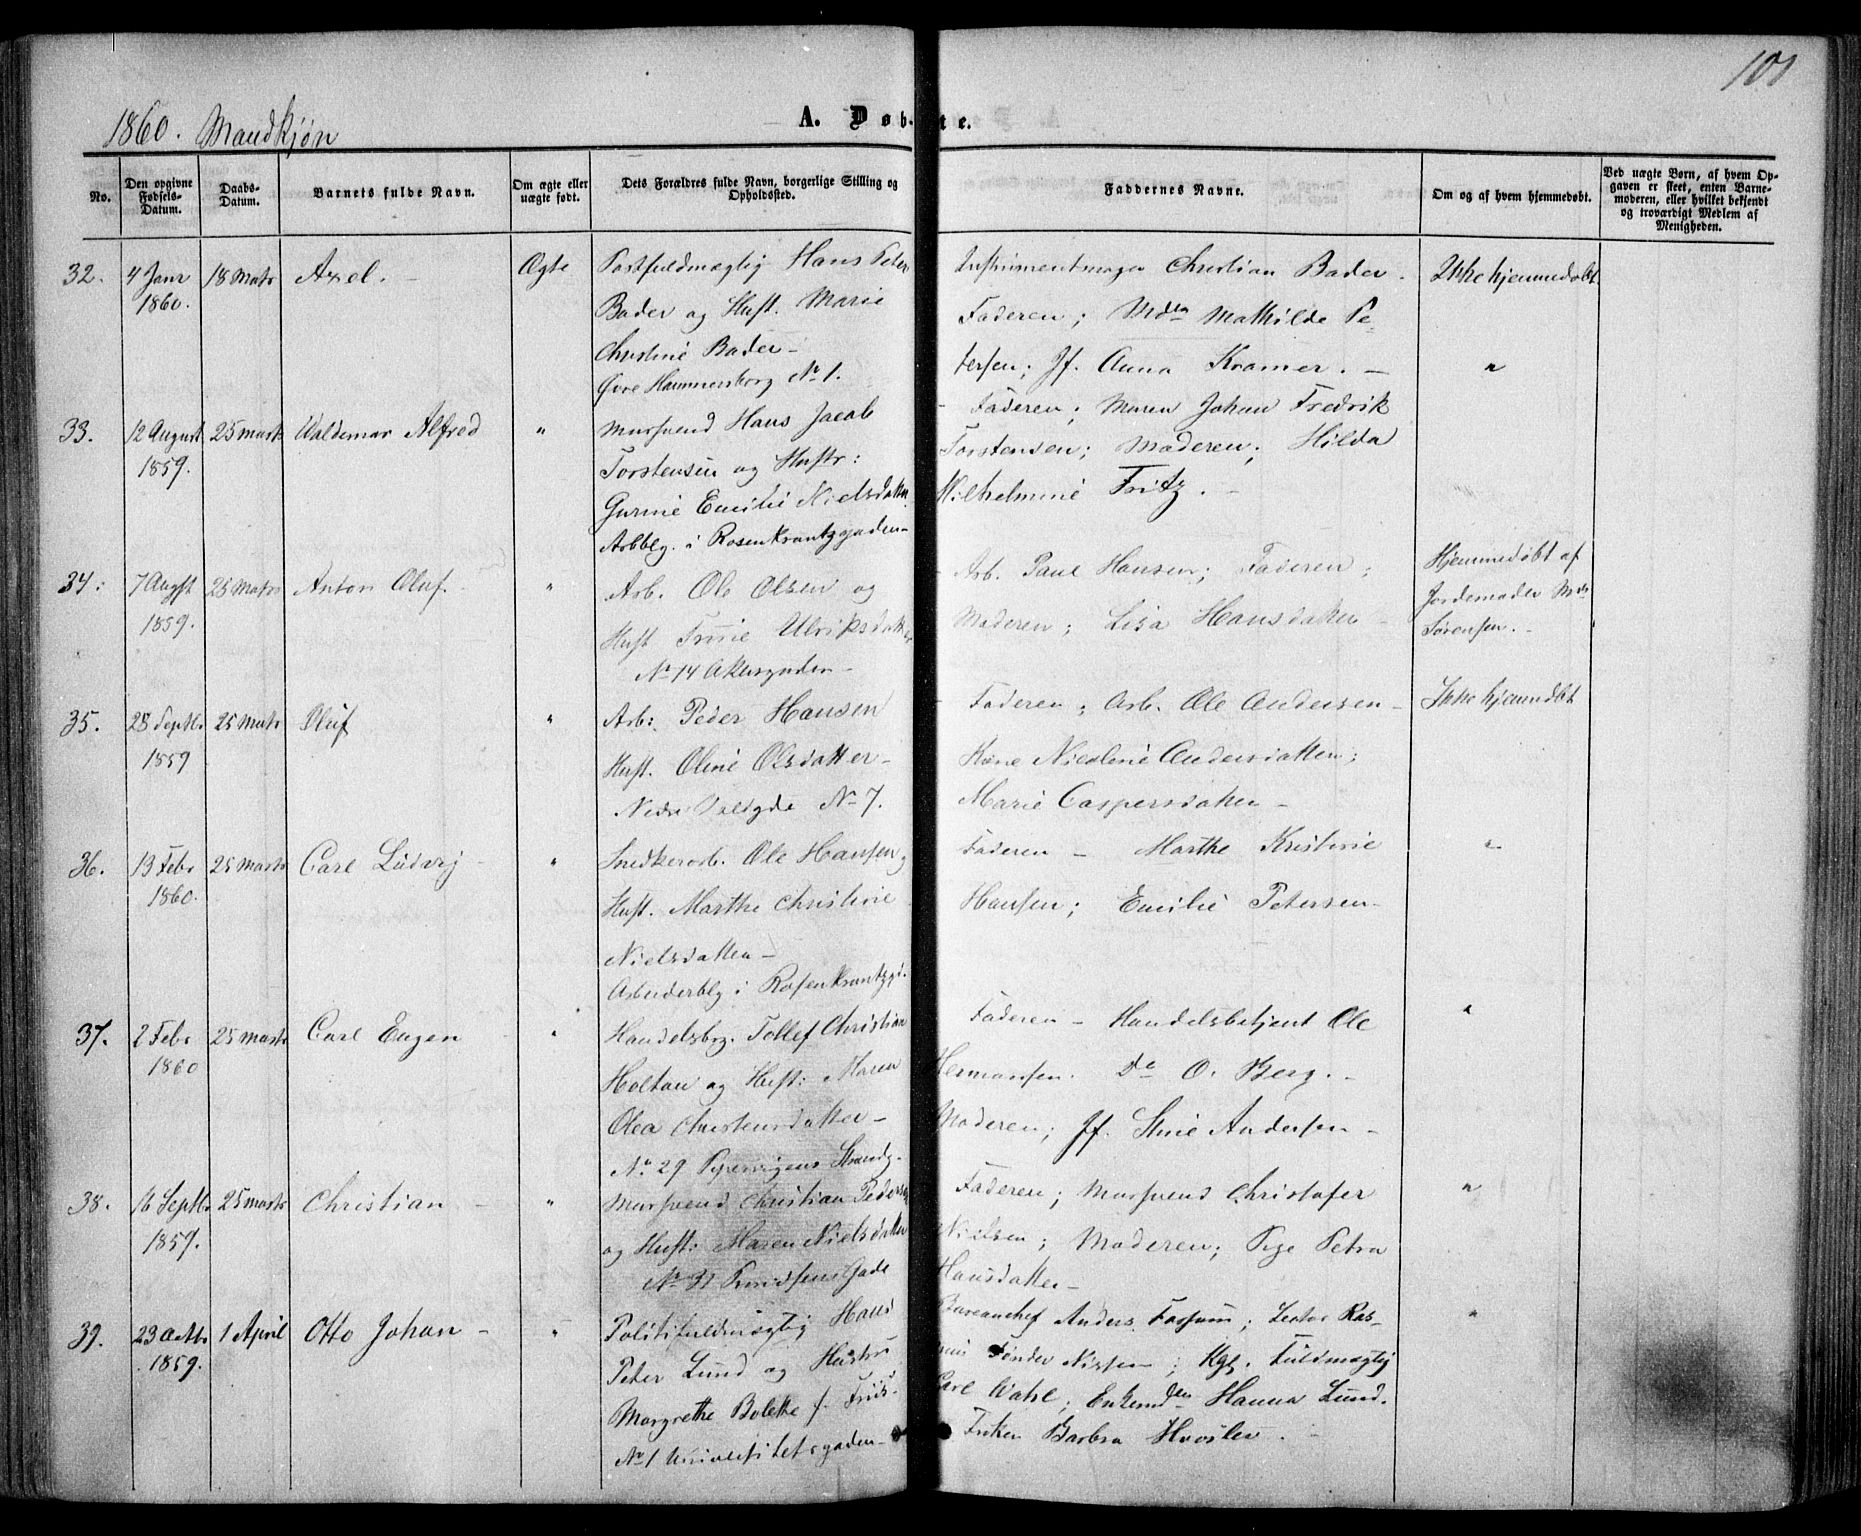 101
1860. Mandkjøn
A. Døbte.
No.
Den opgivne Fødsels-Datum.
Daabs-Datum.
Barnets fulde Navn.
Om ægte eller uægte født.
Dets Forældres fulde Navn, borgerlige Stilling og Opholdssted.
Faddernes Navne.
Om og af hvem hjemmedøbt.
Ved uægte Børn, af hvem Opgaven er skeet, enten Barnemoderen, eller hvilket bekjendt og troværdigt Medlem af Menigheden.
32. 4 Janr 1860. 18 Marts Axel. - Ægte
Postfuldmægtig Hans Peter
Bader og Hust. Marie
Christine Bader -
Øvre Hammersborg No 1.
Instrumentmager Christian Bader.
Faderen; Mdm Mathilde Pe-
tersen; Jf. Anna Kramer. -
Ikke hjemmedøbt
"
33. 12 August 1859. 25 Marts Waldemar Alfred "
Mursvend Hans Jacob
Torstensen og Hustr:
Gurine Emilie Nielsdatter
Arbblg. i Rosenkrantzgaden -
Faderen; Maren Johan Fredrik
Torstensen; Moderen; Hilda
Wilhelmine Fritz. -
34. 7 Augst 1859. 25 Marts Anton Oluf. - "
Arb. Ole Olsen og
Hust Trine Ulriksdatter
No 14 Akersgaden -
Arb. Paul Hansen; Faderen;
Moderen; Lisa Hansdatter -
Hjemmedøbt af
Jordemoder Mds
Sørensen. -
35. 28 Septbr 1859 25 Marts Oluf "
Arb: Peder Hansen
Hust. Oline Olsdatter -
Nedre Voldgde No 7.
Faderen; Arb. Ole Andersen -
Kone Nicoline Andersdatter;
Marie Caspersdatter -
Ikke hjemmdøbt
36. 13 Febr 1860. 25 Marts Carl Ludvig - "
Snedkerarb. Ole Hansen og
Hust. Marthe Christine
Nielsdatter -
Arbeiderblg i Rosenkrantzgd.
Faderen - Marthe Kristine
Hansen; Emilie Petersen -
"
37. 2 Febr 1860 25 Marts Carl Eugen "
Handelsbg. Tollef Christian
Holtan og Hust: Maren
Olea Christensdatter -
No 29 Pipervigens Strandg.
Faderen - Handelsbetjent Ole
Hermansen. Do O. Berg. -
Moderen; Jf. Stine Andersen -
"
38. 16 Septbr 1859. 25 Marts Christian - "
Mursvend Christian Pedersen
og Hust: Maren Nielsdatter
No 31 Knudsens Gade
Faderen; Mursvend Christofer
Nielsen; Moderen; Pige Petra
Hansdatter -
"
39. 23 Octbr 1859. 1 April Otto Johan - "
Politifuldmægtig Hans
Peter Lund og Hustru
Margrethe Bolette f. Friis -
No 1 Universitetsgaden -
Bureauchef Anders Fossum; Lector Ras-
mus Tønder Nissen; Kgl. Fuldmægtig
Carl Wahl; Enkemdm Hanna Lund.
Frøken Barbra Hvosler. -
"